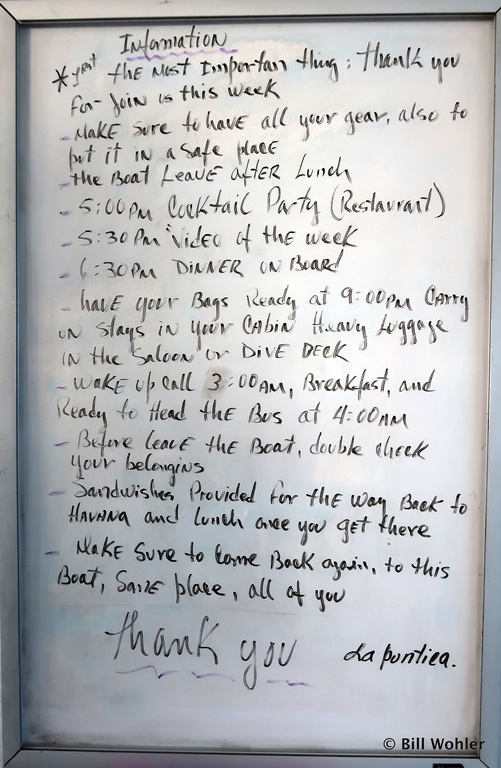 Information
* the Most Importan thing: thank you
for join us this week
- Make sure to have all your gear, also to
put it in a safe place
- the Boat Leave after Lunch
- 5:00PM Cocktail Party (Restaurant)
- 5:30 PM Video of the week
- 6:30PM Dinner on Board
- have your Bags Ready at 9:00PM Carry
on stays in your Cabin Heavy Luggage
in the Saloon or Dive Deck
- Wake up call 3:00AM, Breakfast, and
Ready to Head the Bus at 4:00AM
- Before leave the Boat, double check
your belongins
- Sandwishes Provided for the way Back to
Havana and Lunch once you get there
- Make sure to Come Back again, to this
Boat, Same place, all of you
thank you
La puntica.
© Bill Wohler